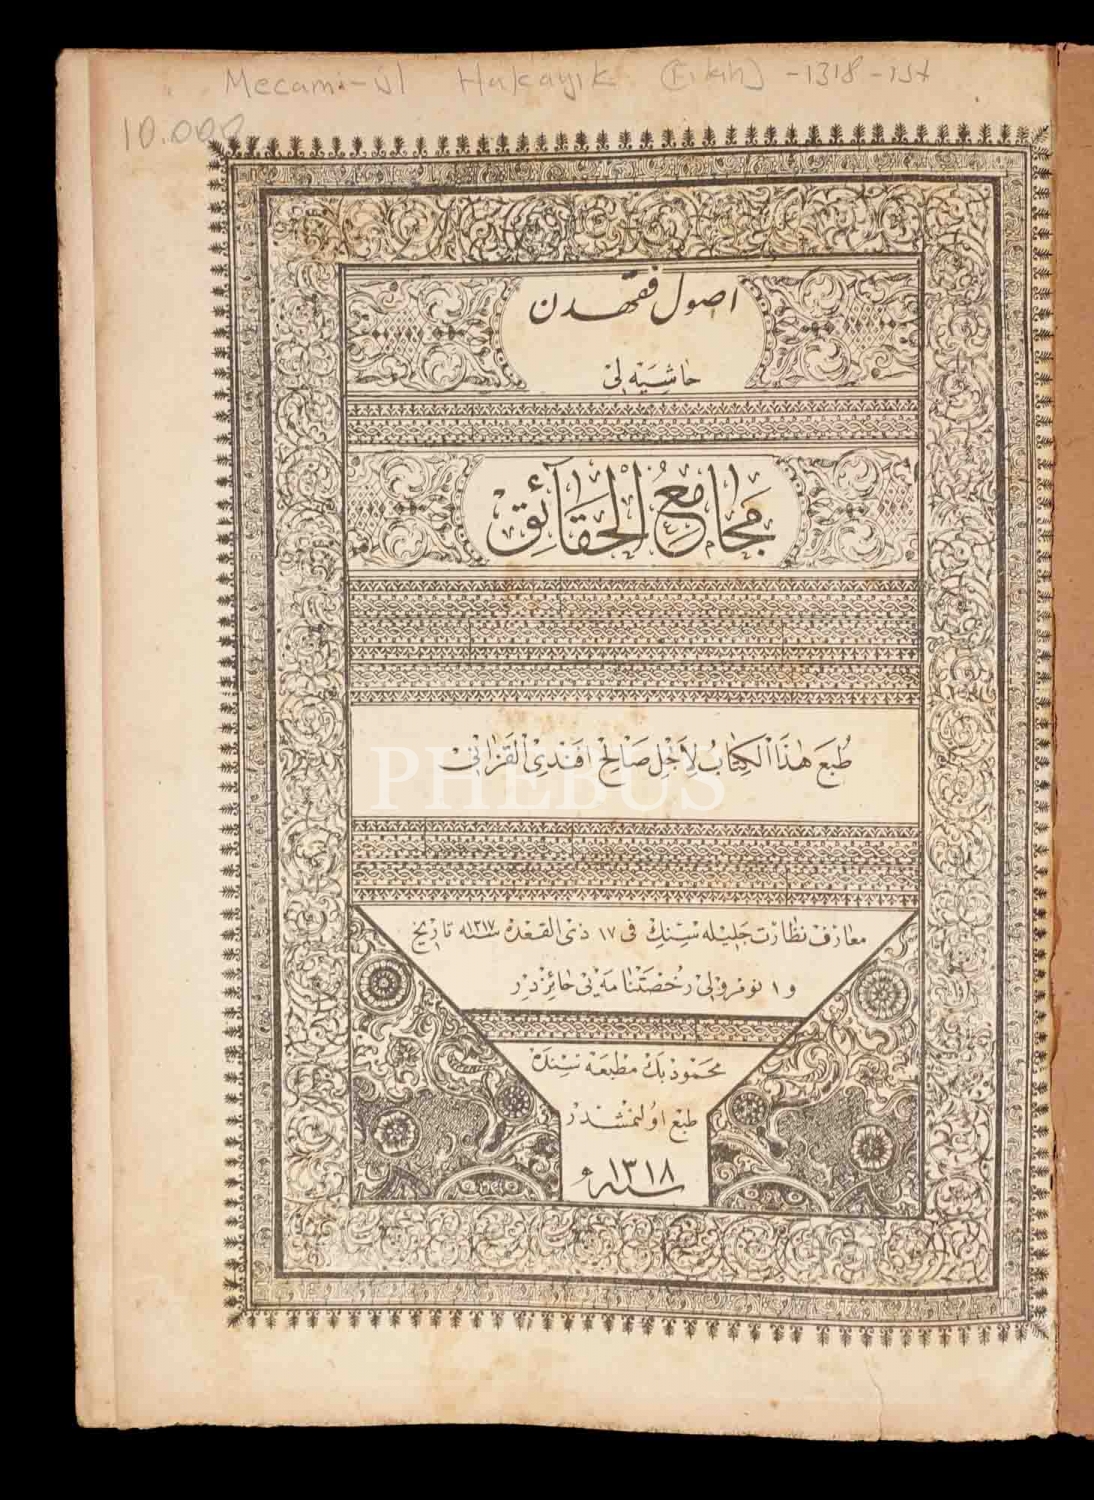 Mecami-ül Hakayık (Fıkıh) -1318-ist
10.000
اصول فقهدن
حاشيه‌لى
مجامع الحقائق
طبع هذا الكتاب لأجل صالح افندى القزانى
PHEBUS
معارف نظارت جليله سنك فى ١٧ ذى القعده سنه ١٣١٧ تاريخ
و ١ نومرولى رخصتنامه‌نى حائزدر
محمود بك مطبعه سنده
طبع اولنمشدر
سنه ١٣١٨